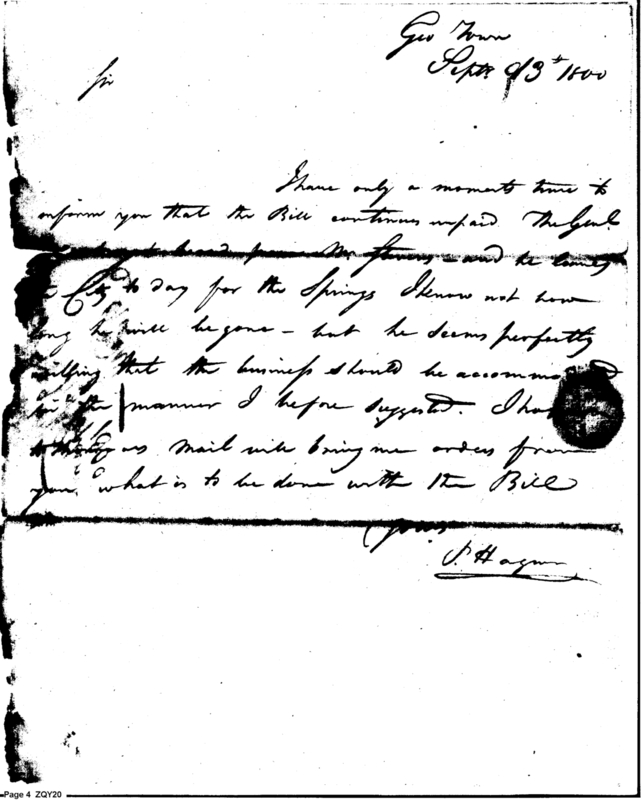 Geo Town
Septr 13th 1800
Sir
I have only a moments time to
inform you that the Bill continues unpaid. The Genl.
heard from Mr Stevens - and he
City to day for the Springs I know not how
long he will be gone - but he seems perfectly
willing that the business should be
in the manner I before suggested. I
mail will bring me orders from
you what is to be done with the Bill
Yours
P. Hagner
Page 4 ZQY20